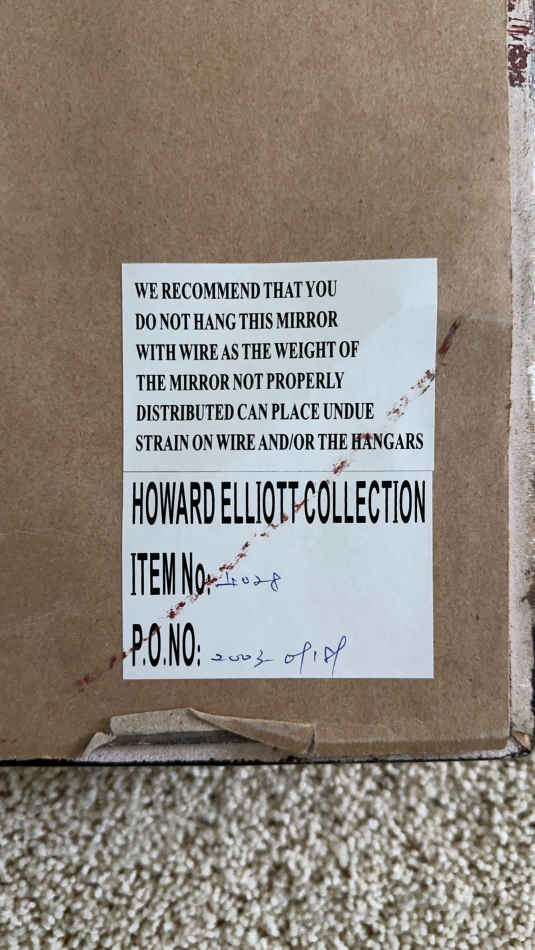 WE RECOMMEND THAT YOU
DO NOT HANG THIS MIRROR
WITH WIRE AS THE WEIGHT OF
THE MIRROR NOT PROPERLY
DISTRIBUTED CAN PLACE UNDUE
STRAIN ON WIRE AND/OR THE HANGARS
HOWARD ELLIOTT COLLECTION
ITEM No: 4028
P.O.NO: 2003